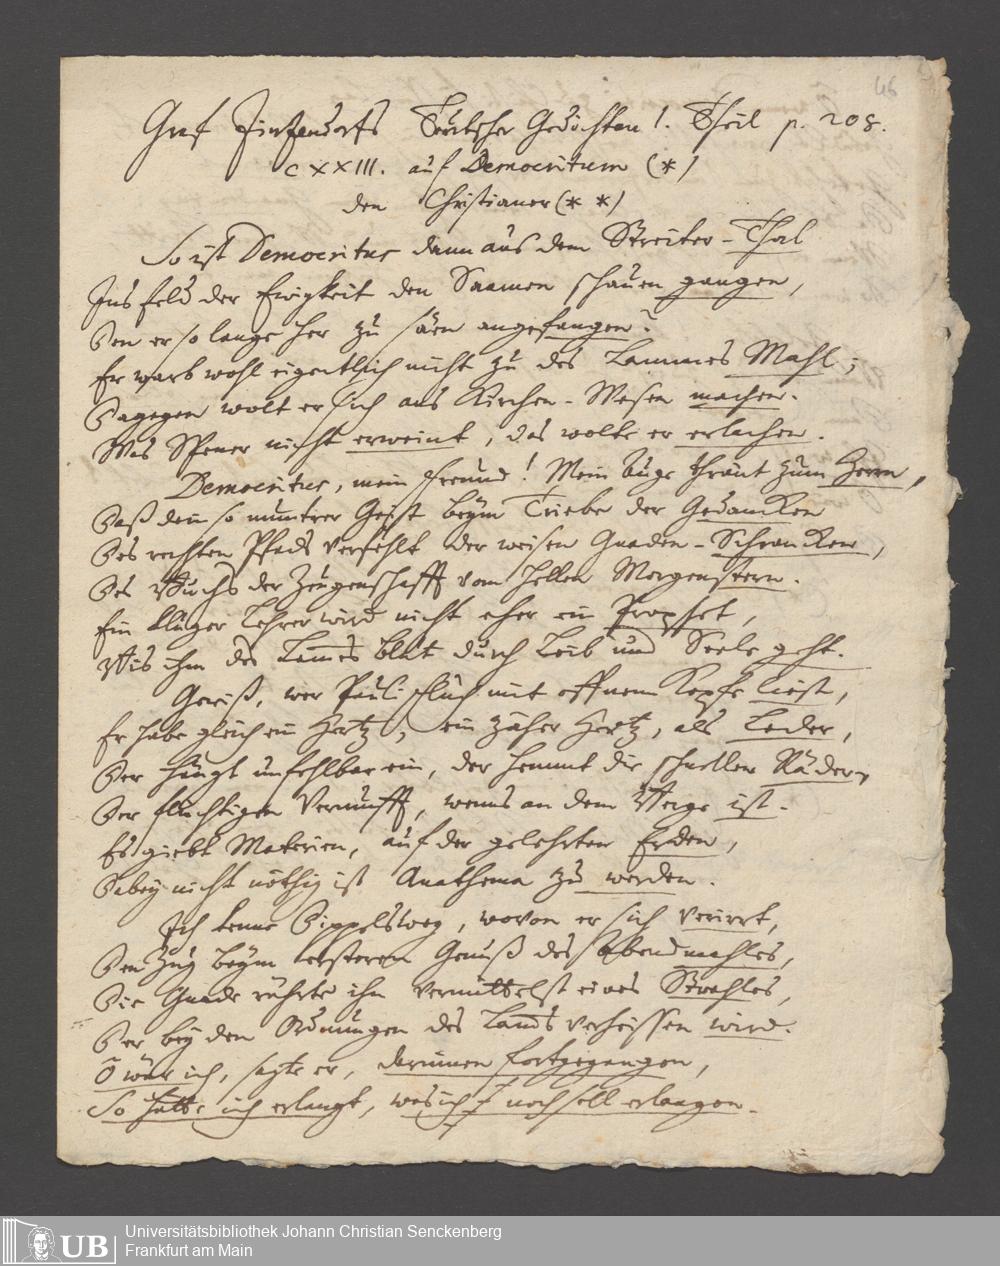 46
Graf Zinzendorfs Teutscher Gedichten 1. Theil p. 208.
CXXIII. auf Democritum (*)
den Christianer (* *)
So ist Democritus dann aus dem Streiter-Thal
Ins Feld der Ewigkeit den Saamen schauen gangen,
Den er so lange her zu säen angefangen?
Er warb wohl eigentlich nicht zu des Lammes Mahl;
Dagegen wolt er sich ans Kirchen-Wesen machen.
Was Spener nicht erweint, das wolte er erlachen.
Democritus, mein Freund! Mein Auge thränt zum Herrn,
Daß dein so muntrer Geist beym Triebe der Gedancken
Des rechten Pfads verfehlt der weisen Gnaden-Schrancken,
Des Wuchs der Zeugenschafft vom hellen Morgenstern.
Ein kluger Lehrer wird nicht eher ein Prophet,
Bis ihm des Lam̄es Blut durch Leib und Seele geht.
Gewiß, wer Pauli Fluch mit offnem Kopfe liest,
Er habe gleich ein Hertz, ein zäher Hertz, als Leder,
Der hängt unfehlbar ein, der hemmt die schnellen Räder,
Der flüchtigen Vernunfft, wenns an dem Wege ist.
Es giebt Materien, auf der gelehrten Erden,
Dabey nicht nöthig ist Anathema zu werden.
Ich kenne Dippels Weg, wovon er sich verirrt,
Den Zug beym ersteren Genuß des Abendmahles,
Die Gnade rührte ihn vermittelst eines Strahles,
Der bey den Ordnungen des Lam̄s verheissen wird.
O wär ich, sagte er, darinnen fortgegangen,
So hätte ich erlangt, was ich noch soll erlangen.
UB
Universitätsbibliothek Johann Christian Senckenberg
Frankfurt am Main